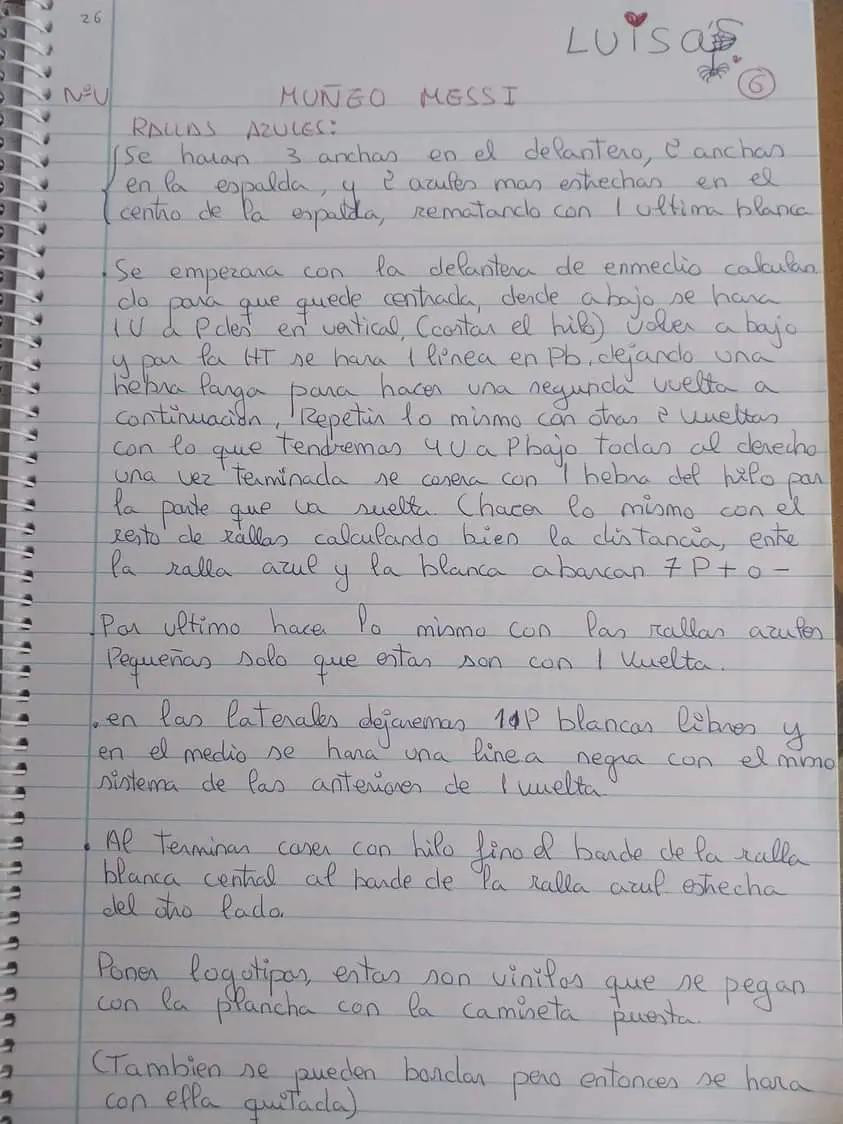 26
LUISA'S
6
NºU MUÑEO MESSI
RALLAS AZULES:
Se haran 3 anchas en el delantero, 2 anchas
en la espalda, y 2 azules mas estrechas en el
centro de la espalda, rematando con 1 ultima blanca
Se empezara con la delantera de enmedio calculan
do para que quede centrada, desde abajo se hara
1U a P des en vertical, (cortar el hilo) volver a bajo
y por la HT se hara 1 linea en Pb, dejando una
hebra larga para hacer una segunda vuelta a
continuación, Repetir lo mismo con otras 2 vueltas
con lo que tendremos 4U a Pbajo todas al derecho
una vez terminada se cosera con 1 hebra del hilo por
la parte que va suelta. (hacer lo mismo con el
resto de rallas calculando bien la distancia, entre
la ralla azul y la blanca abarcan 7 P + o -
Por ultimo hacer lo mismo con las rallas azules
Pequeñas solo que estas son con 1 Vuelta.
. en los laterales dejaremos P blancos libres y
en el medio se hara una linea negra con el mimo
sistema de las anteriores de 1 vuelta
. Al terminar coser con hilo fino el borde de la ralla
blanca central al borde de la ralla azul estrecha
del otro lado.
Poner logotipos, estos son vinilos que se pegan
con la plancha con la camiseta puesta.
(Tambien se pueden bordar pero entonces se hara
con ella quitada)